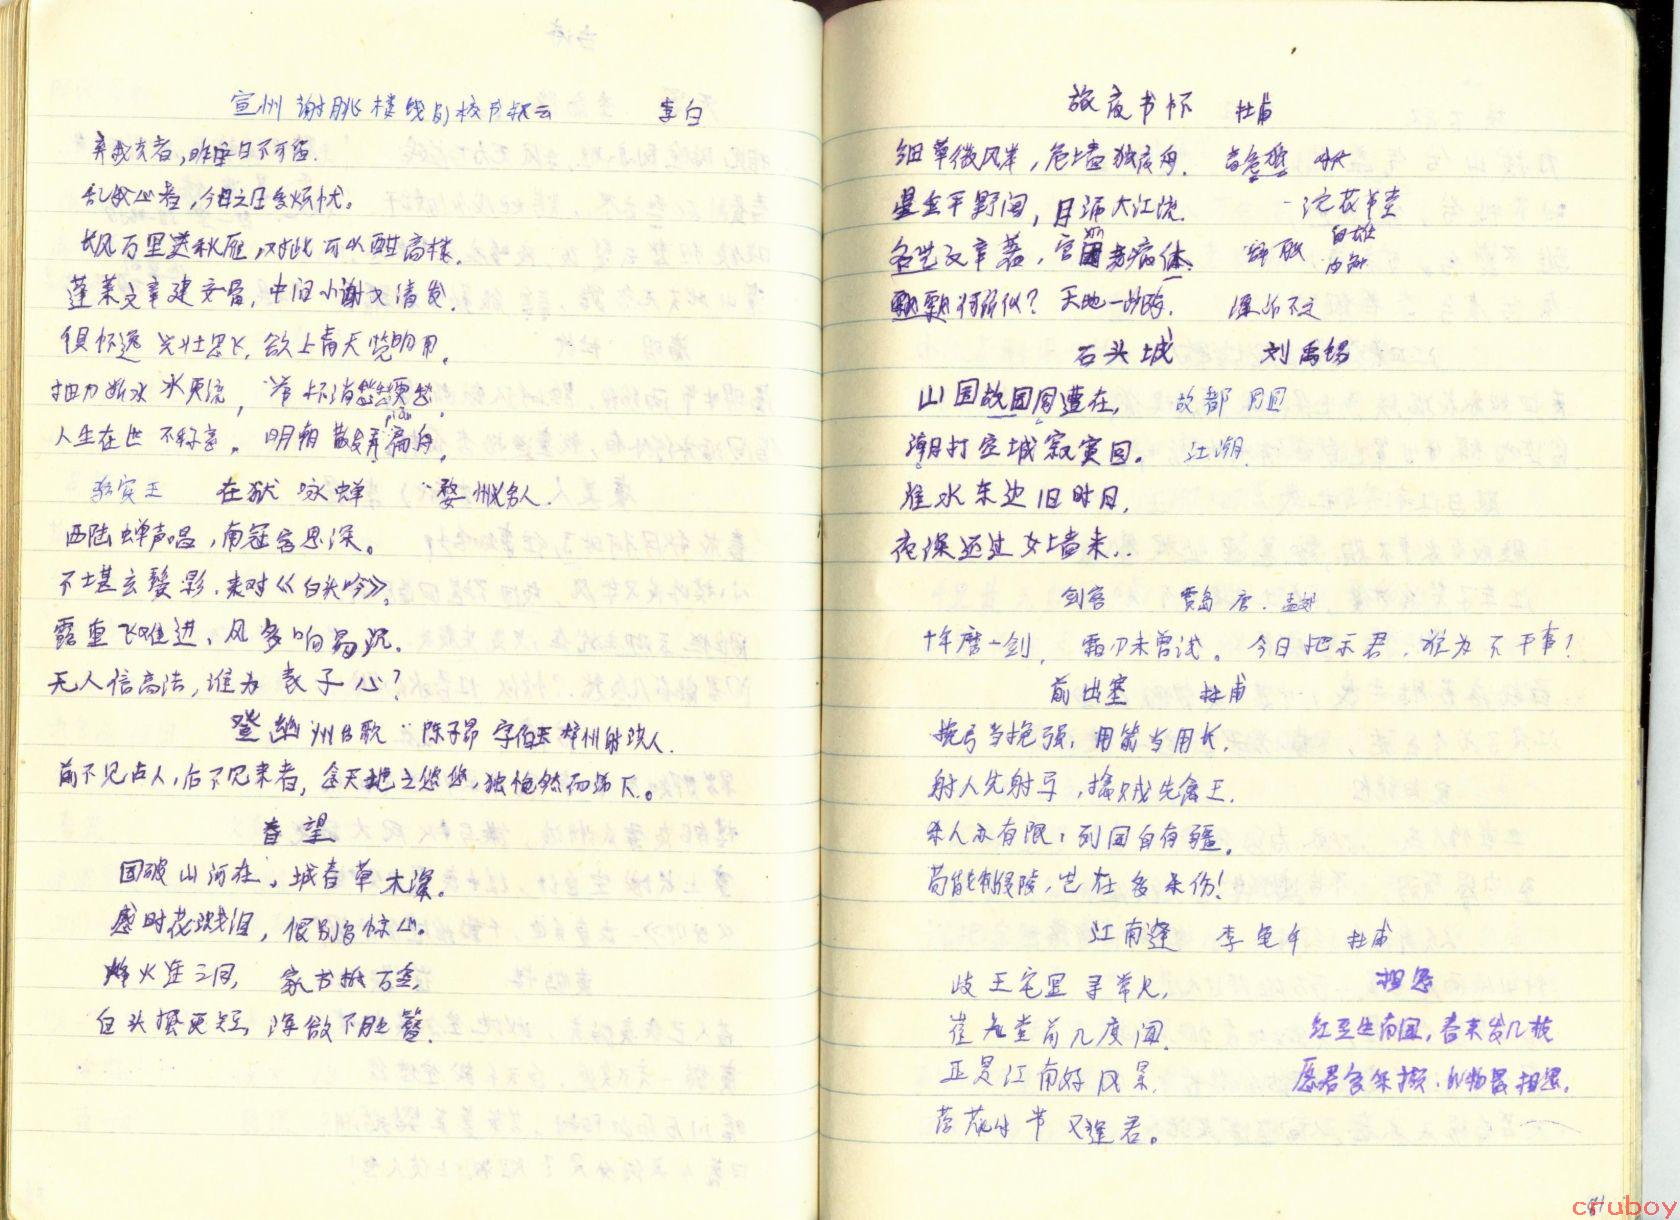 宣州谢朓楼饯别校书叔云 李白
弃我去者，昨日之日不可留.
乱我心者，今日之日多烦忧。
长风万里送秋雁，对此可以酣高楼.
蓬莱文章建安骨，中间小谢又清发.
俱怀逸兴壮思飞，欲上青天览明月.
抽刀断水水更流，举杯消愁愁更愁.
人生在世不称意。明朝散发弄扁舟.
pian
骆宾王 在狱咏蝉 婺州义乌人.
西陆蝉声唱，南冠客思深。
不堪玄鬓影.来对《白头吟》.
露重飞难进、风多响易沉.
无人信高洁，谁为表予心?
登幽州台歌 陈子昂 字伯玉 梓州射洪人.
前不见古人，后不见来者，念天地之悠悠，独怆然而涕下。
春望
国破山河在，城春草木深.
感时花溅泪，恨别鸟惊心.
烽火连三月, 家书抵万金.
白头搔更短，浑欲不胜簪.
旅夜书怀 杜甫
细草微风岸，危墙独夜舟.
星垂平野阔，月涌大江流. 浣花草堂
名岂文章著，官因老病休.
飘飘何所似? 天地一沙鸥.
石头城 刘禹锡
山国故国周遭在, 故都 周回
潮打空城寂寞回. 江潮
淮水东边旧时月,
夜深还过女墙来..
剑客 贾岛 唐.孟郊
十年磨一剑, 霜刃未曾试。今日把示君.谁为不平事?
前出塞 杜甫
挽弓当挽强，用箭当用长.
射人先射马，擒贼先擒王.
杀人亦有限，列国自有疆.
苟能制侵陵，岂在多杀伤!
江南逢李龟年 杜甫
岐王宅里寻常见,
崔九堂前几度闻.
正是江南好风景.
落花时节又逢君。
相思
红豆生南国，春来发几枝
愿君多采撷.此物最相思.
cruboy